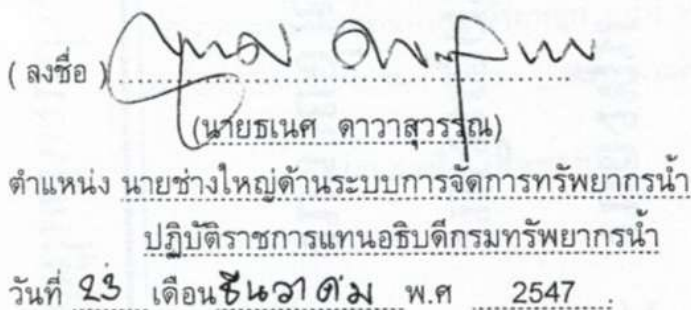 ( ลงชื่อ )
(นายธเนศ ดาวาสุวรรณ)
ตำแหน่ง นายช่างใหญ่ด้านระบบการจัดการทรัพยากรน้ำ
ปฏิบัติราชการแทนอธิบดีกรมทรัพยากรน้ำ
วันที่ 23 เดือน ธันวาคม พ.ศ 2547